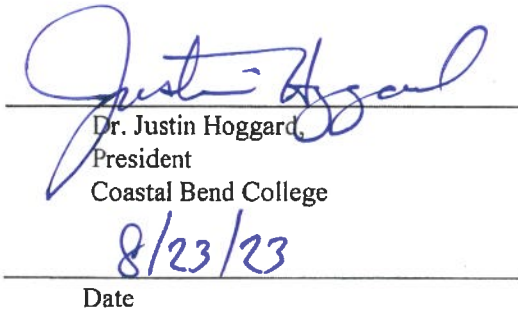 Justin Hoggard
Dr. Justin Hoggard,
President
Coastal Bend College
8/23/23
Date